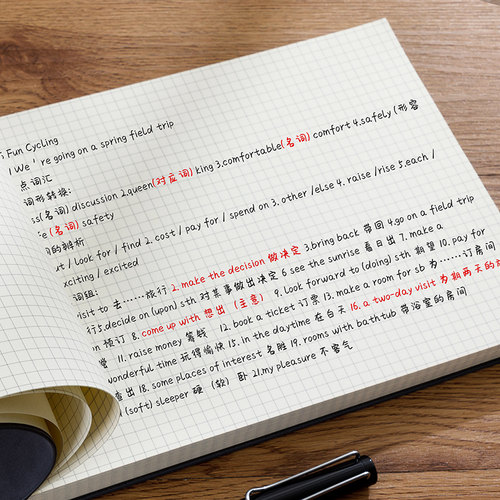 Fun Cycling
We're going on a spring field trip
点词汇
词形转换:
ss(名词) discussion 2.queen(对应词) king 3.comfortable(名词) comfort 4.safely (形容
e (名词) safety
的辨析
ut / look for / find 2. cost / pay for / spend on 3. other /else 4. raise /rise 5.each /
xciting / excited
词组:
isit to 去……旅行 2. make the decision 做决定 3.bring back 带回 4.go on a field trip
行5.decide on (upon) sth 对某事做出决定 6 see the sunrise 看日出 7. make a
on 预订 8. come up with 想出 (主意) 9. Look forward to (doing) sth 期望 10. pay for
11. raise money 筹钱 12. book a ticket 订票 13. make a room for sb 为……订房间
wonderful time 玩得愉快 15. in the daytime 在白天 16. a two-day visit 为期两天的
出 18. some places of interest 名胜 19. rooms with bathtub 带浴室的房间
(soft) sleeper 硬 (软) 卧 21.my pleasure 不客气